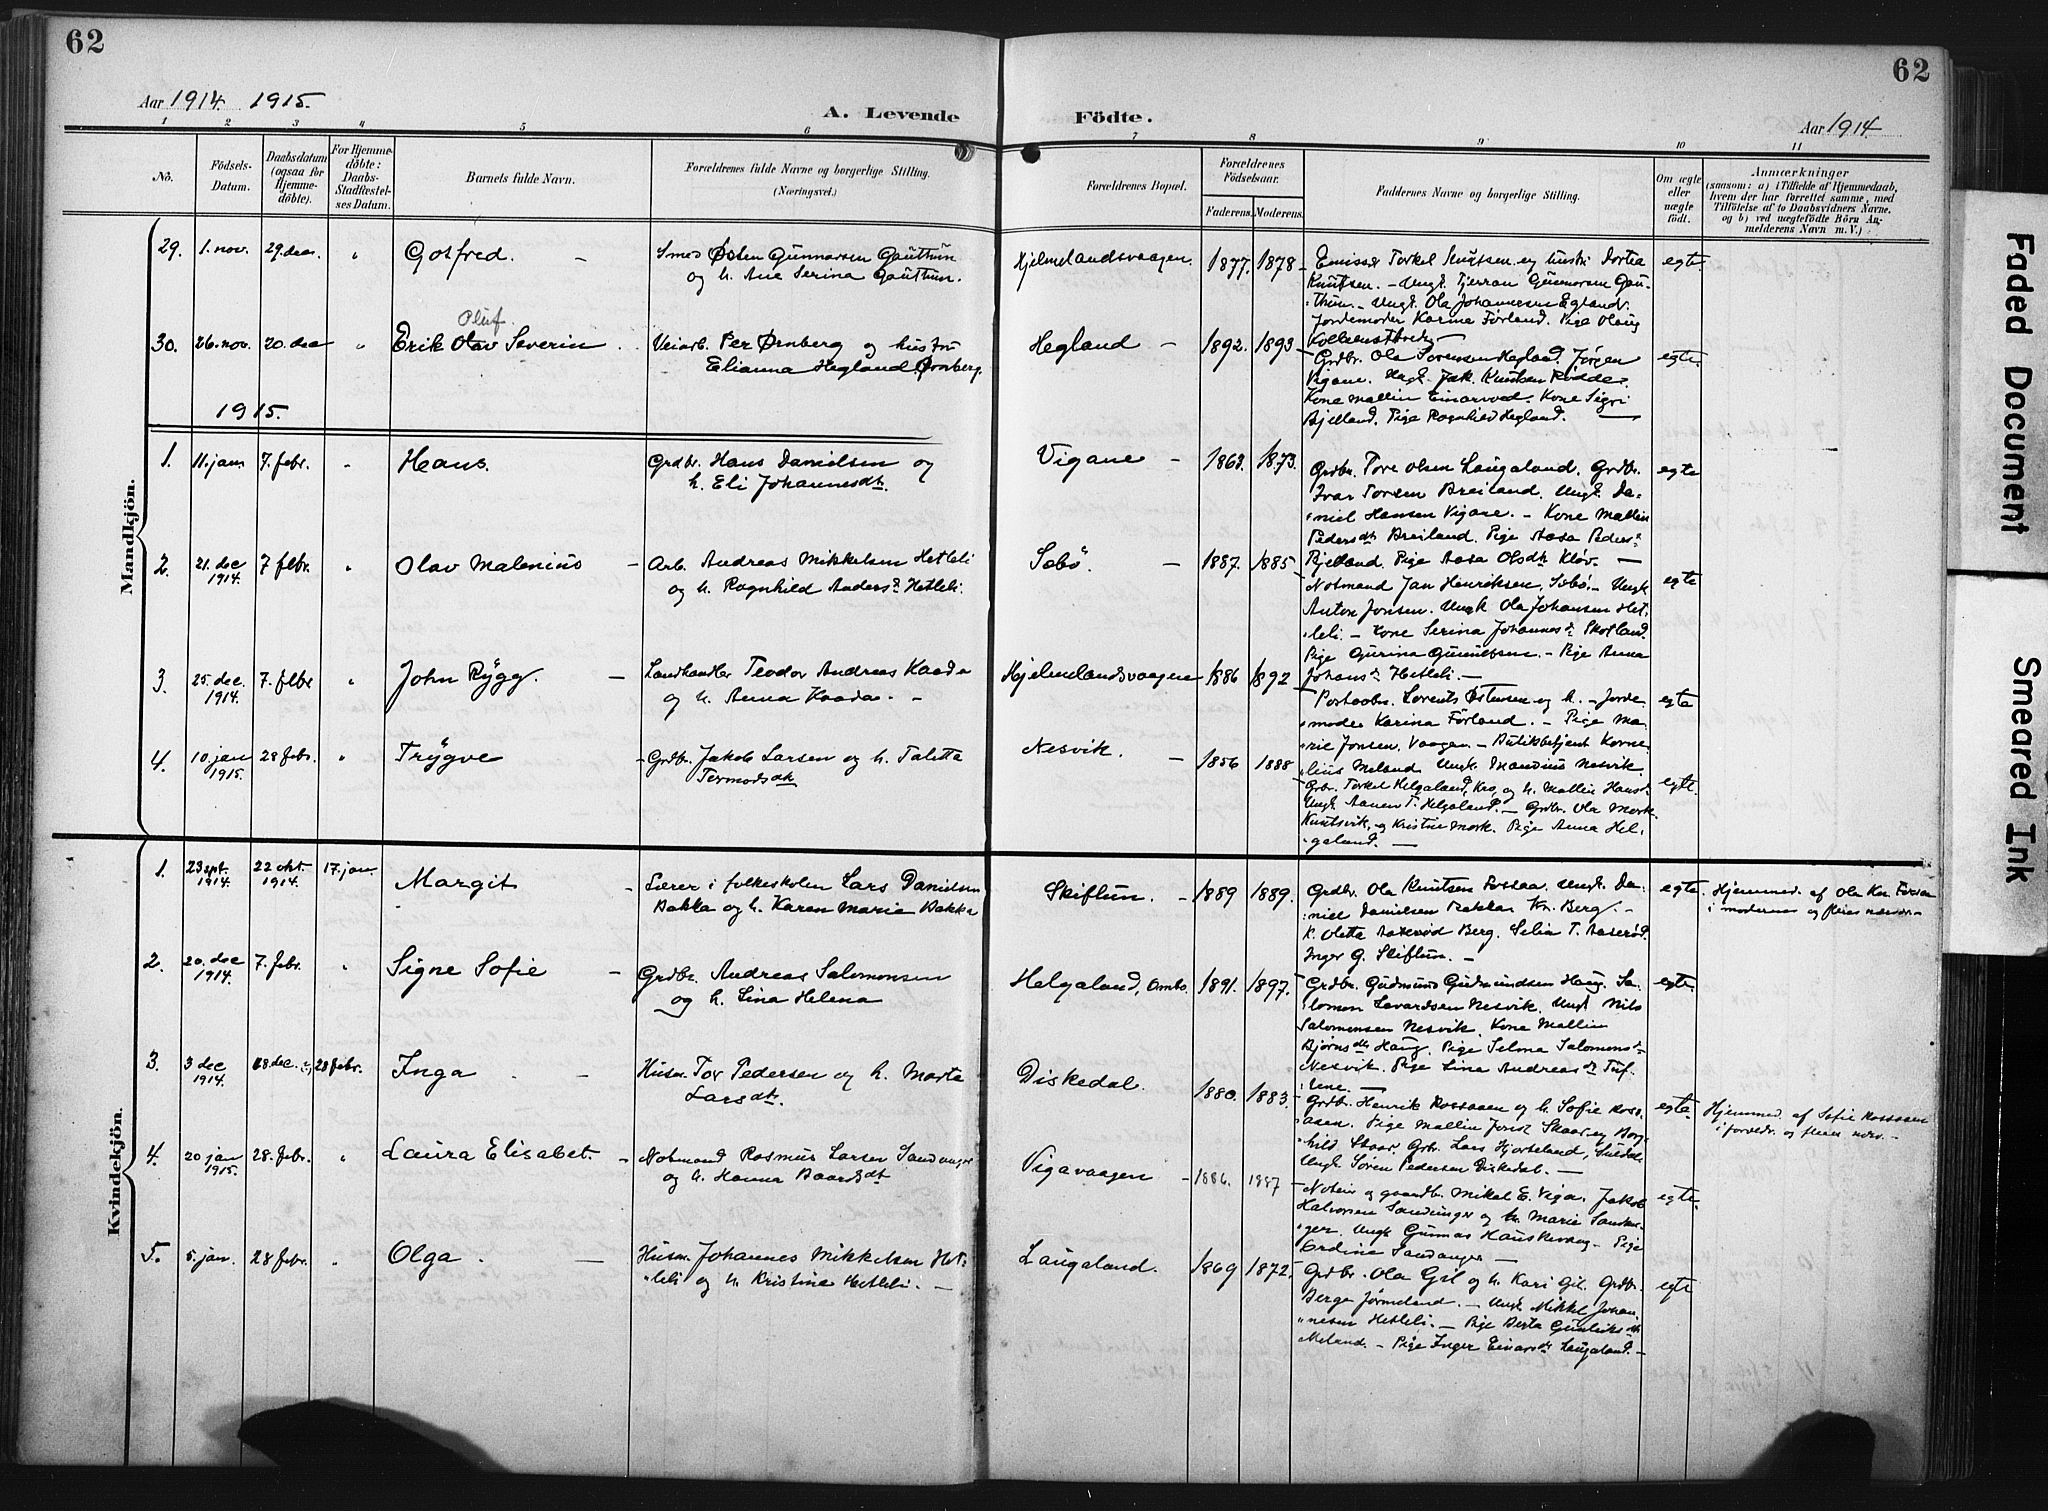 62
62
Aar 1914. 1915.
A. Levende
Födte.
Aar 1914
1 2 3 4 5 6 7 8 9 10 11
Nò.
Födsels-
Datum.
Daabsdatum
(ogsaa for
Hjemme-
döbte).
For Hjemme-
döbte:
Daabs-
Stadfæstel-
ses Datum.
Barnets fulde Navn.
Forældrenes fulde Navne og borgerlige Stilling.
(Næringsvei.)
Forældrenes Bopæl.
Forældrenes
Födselsaar.
Faderens. Moderens.
Faddernes Navne og borgerlige Stilling.
Om ægte
eller
uægte
födt.
Anmærkninger
(saasom: a) i Tilfælde af Hjemmedaab,
hvem der har forrettet samme, med
Tilföielse af to Daabsvidners Navne,
og b) ved uægtefödte Börn An-
melderens Navn m. V.)
Mandkjön.
29. 1. nov. 29. dec. " Gotfred. –
Smed Østen Gunnarsen Gauthun
og h. Ane Serina Gauthun.
Hjelmelandsvaagen. 1877. 1878
Knutsen. – Ungk. Gunnarsen Gau-
thun. – Ungk. Ola Johannesen Egland.
Jordemoder Karina Førland. Pige Olaug
egte.
Oluf
30. 26. nov. 20. dec " Erik Olav Severin
Veiarb. Per Ørnberg og hustru
Elianna Hegland Ørnberg.
Hegland – 1892. 1893
Grdbr. Ola Sorensen Hegland. Jørgen
Vigane. Ungk. Jak. Knutsen Rødde.
Kone Mallin Einarvoed. Kone Sigri
Bjelland. Pige Ragnhild Hegland. –
egte.
1915.
1. 11. jan 7. febr. " Hans.
Grdbr. Hans Danielsen og
h. Eli Johannesdt.
Vigane – 1863. 1873.
Grdbr. Tore Olsen Laugaland. Grdbr.
Ivar Torsen Breiland. Ungk. Da-
niel Hansen Vigane. – Kone Mallin
Pedersdt Breiland. Pige Aasa Peders
Bjelland. Pige Aasa Olsdt. Kløv. –
egte
2. 21. dec 1914. 7 febr. " Olav Malenius –
Arb. Andreas Mikkelsen Hetleli
og h. Ragnhild Anders Hetleli.
Sæbö. – 1887. 1885
Notmand Jan Henriksen, Sæbö. – Ungk
Anton Jonsen. Ungk Ola Johansen Het-
leli. – Kone Serina Johannes Skotland.
Pige Gurina Gunnulfsen. – Pige Anna
Johans Hetleli. –
egte
3. 25. dec. 1914. 7. febr " John Rÿgg. –
Landhandler Teodor Andreas Kaada
og h. Anna Kaada. –
Hjelmelandsvaagen 1886 1892
Postaabn. Lorents Østensen og h. – Jorde-
moder Karina Førland. – Pige Ma-
rie Jonsen, Vaagen. – Butikbetjent Korne-
lius Meland. Ungk. Nesvik.
egte
4. 10. jan 1915. 28 febr. " Trÿgve
Grdbr. Jakob Larsen og h. Taletta
Tormodsdt
Nesvik. – 1856 1888
Grbr. Torkel Helgaland, og h. Mallin Hans
Ungk. T. Helgaland. – Grdbr. Ola Mork
Knutsvik, og Kristine Mork. Pige Anna Hel-
galand. –
egte.
Kvindekjön.
1. 23 sept. 1914. 22 okt. 1914. 17. jan Margit –
Lærer i folkeskolen Lars Danielsen
Bakka og h. Karen Marie Bakka
Skiftun. – 1889 1889.
Grdbr. Ola Knutsen Fossaa. Ungk. Da-
niel Danielsen Bakka. Kr. Berg. –
K. Oletta Berg. Selia T. Aaserød.
Inger G. Skiftun. –
egte.
Hjemmed. af Ola Kn. Fossaa
i moderens og fleres nærvær. –
2. 20. dec 1914. 7. febr. " Signe Sofie –
Grdbr. Andreas Salomonsen
og h. Lina Helena
Helgaland, Ombo. 1891. 1897.
Grdbr. Gudmund Gudmundsen Haug. Sa-
lomon Levardsen Nesvik. Ungk. Nils
Salomonsen Nesvik. Kone Mallin
Bjørnsdt Haug. Pige Selma Salomons
Nesvik. Pige Lina Andreasdt Tuf-
tene. –
egte.
3. 3 dec 1914. 18 dec. 28 febr. Inga –
Husm. Tor Pedersen og h. Marta
Larsdt.
Diskedal. 1880. 1883.
Grdbr. Henrik Rossaaen og h. Sofie Ross-
aaen. Pige Mallin Skaar og Borg-
hild Skaar. Grbr. Lars Hjorteland, Suldal
Ungk. Sören Pedersen Diskedal. –
egte.
Hjemmed. af Sofie Rossaaen
i forældr. og fleres nærv. –
4. 20 jan 1915. 28. febr. " Laura Elisabet. –
Notmand Rasmus Larsen Sandanger
og h. Hanna Baardsdt
Vigavaagen – 1886. 1887
Noteier og gaardbr. Mikal E. Viga. Jakob
Halvorsen Sandanger og h. Marie Sandan-
ger. Ungk Gunnar – Pige
Ordine Sandanger –
egte.
5. 5. jan. 28 febr. " Olga. –
Husm. Johannes Mikkelsen Het-
leli og h. Kristine Hetleli. –
Laugaland. 1869 1872.
Grdbr. Ola Gil og h. Kari Gil. Grdbr.
Berge Jörmeland. – Ungk. Mikkel Johan-
nesen Hetleli. – Pige Berta Gunleiksdt
Meland. – Pige Inger Einarsdt Laugaland. –
egte
Faded Document
Smeared Ink